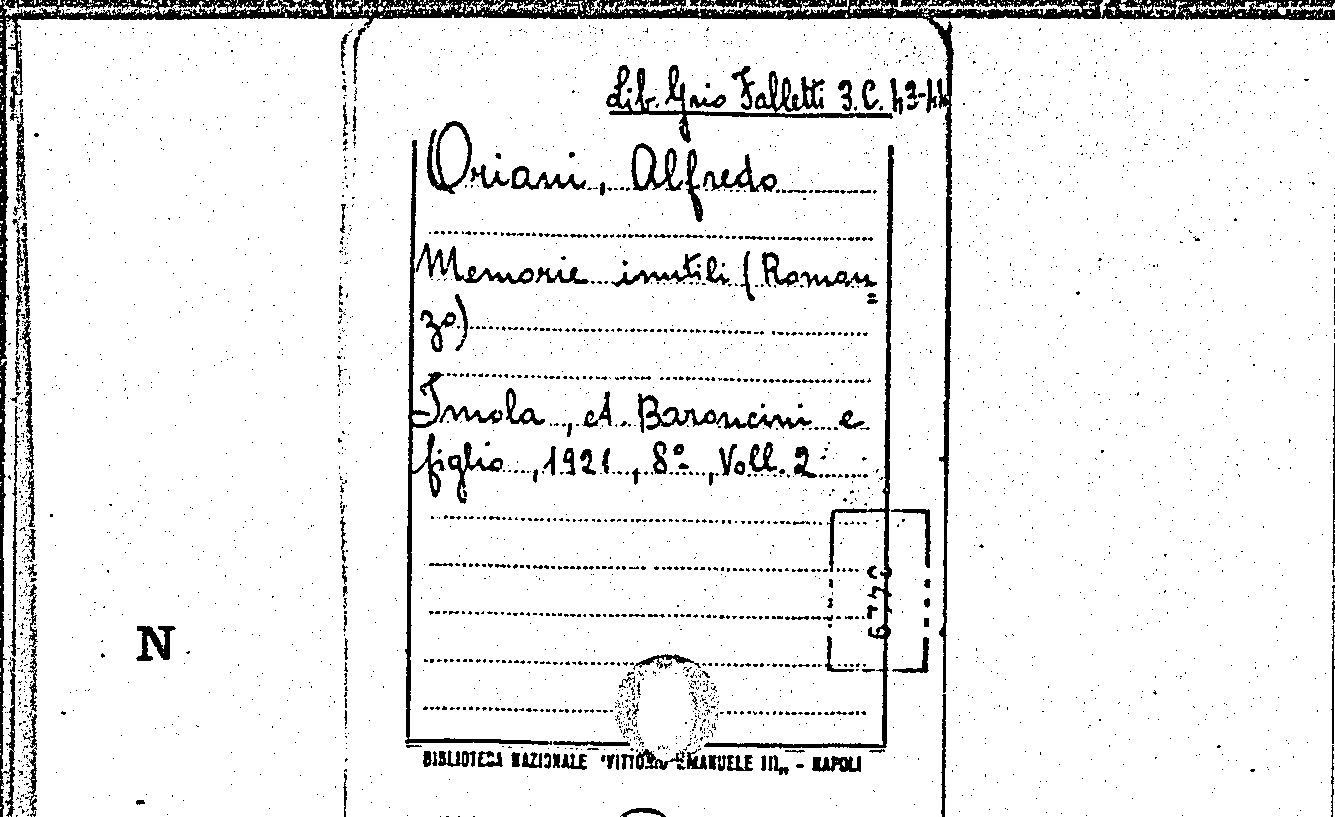 Lib. Grio Falletti 3.C. 43-44
Oriani, Alfredo
Memorie inutili (Roman=
zo)
Imola, A. Baroncini e
figlio, 1921, 8º, Voll. 2
N
BIBLIOTECA NAZIONALE "VITTORIO EMANUELE III„ - NAPOLI